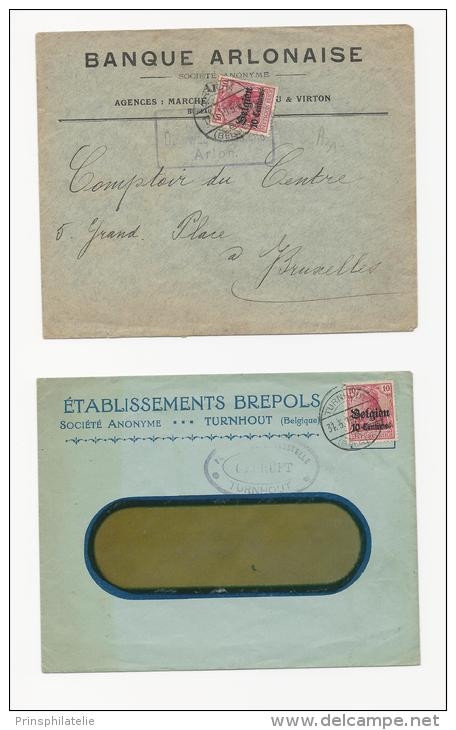 BANQUE ARLONAISE
SOCIÉTÉ ANONYME
AGENCES : MARCHE & VIRTON
Belgien
10 Centimes
Arlon.
Comptoir du Centre
5. Grand Place
à Bruxelles
ÉTABLISSEMENTS BREPOLS
SOCIÉTÉ ANONYME *** TURNHOUT (Belgique)
TURNHOUT
10
Belgien
10 Centimes
GEPRÜFT
TURNHOUT
Prinsphilatelie
delcampe.net